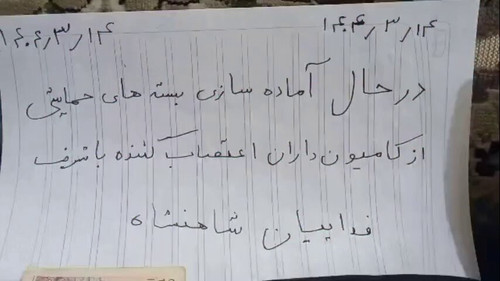 ۱۴۰۴٫۳٫۱۴ ۱۴۰۴٫۳٫۱۴
در حال آماده سازی بسته های حمایتی
از کامیون داران اعتصاب کننده باشرف
فداییان شاهنشاه